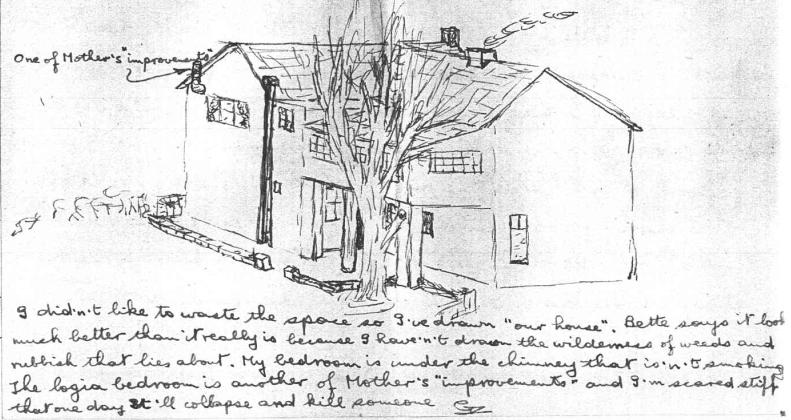 One of Mother's "improvements"
I didn't like to waste the space so I've drawn "our house". Bette says it look
much better than it really is because I haven't drawn the wilderness of weeds and
rubbish that lies about. My bedroom is under the chimney that is'n't smoking
The logia bedroom is another of Mother's "improvements" and I'm scared stiff
that one day it'll collapse and kill someone